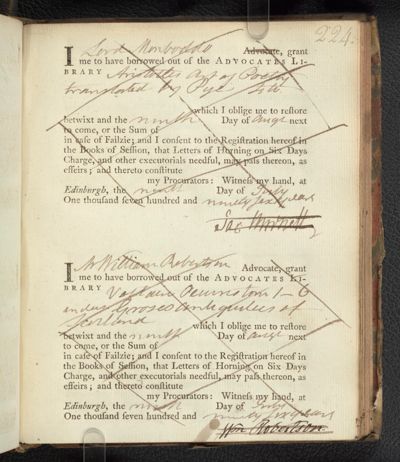 224.
I Lord Monboddo Advocate, grant
me to have borrowed out of the ADVOCATES LI-
BRARY Aristotles Art of Poetry
translated by Pye 4to
which I oblige me to reſtore
betwixt and the ninth Day of Augt next
to come, or the Sum of
in caſe of Failzie; and I conſent to the Regiſtration hereof in
the Books of Seſſion, that Letters of Horning on Six Days
Charge, and other executorials needful, may paſs thereon, as
effeirs; and thereto conſtitute
my Procurators: Witneſs my hand, at
Edinburgh, the ninth Day of July
One thouſand ſeven hundred and ninety six years
Jas Burnett
I Mr William Robertson Advocate, grant
me to have borrowed out of the ADVOCATES LI-
BRARY Voltaire Oeuvres tom 1-6
and Groses Antiquities of
Scotland
which I oblige me to reſtore
betwixt and the ninth Day of Augt next
to come, or the Sum of
in caſe of Failzie; and I conſent to the Regiſtration hereof in
the Books of Seſſion, that Letters of Horning on Six Days
Charge, and other executorials needful, may paſs thereon, as
effeirs; and thereto conſtitute
my Procurators: Witneſs my hand, at
Edinburgh, the ninth Day of July
One thouſand ſeven hundred and ninety six years
Wm Robertson